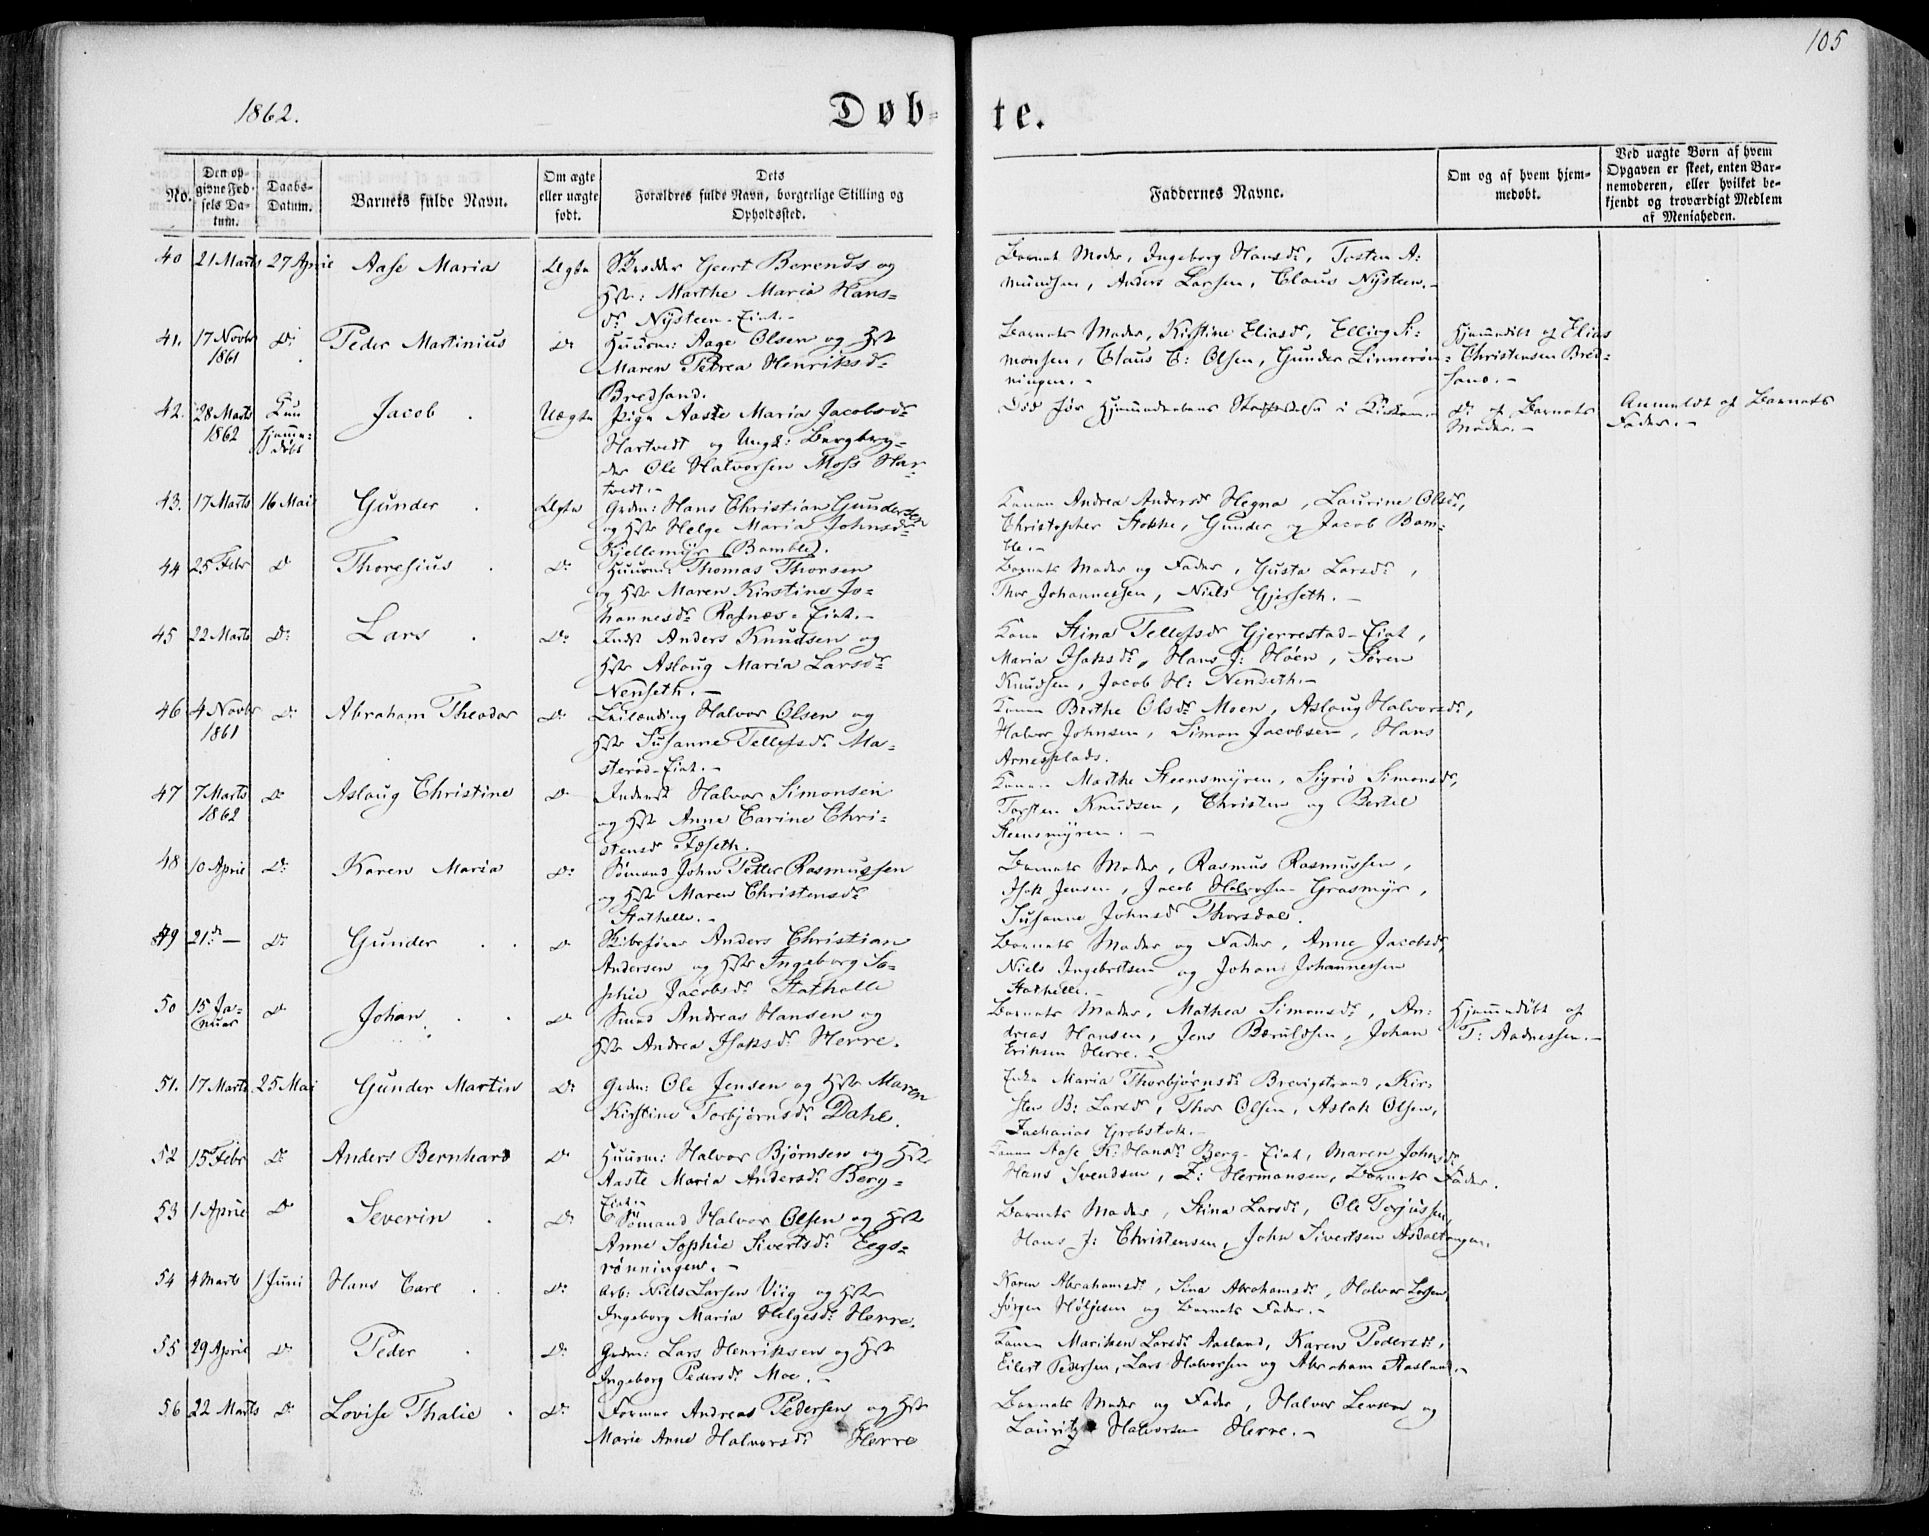 105
1862.
Døb-
te.
No.
Den op
givne Fød
sels Da-
tum.
Daabs-
Datum.
Barnets fulde Navn.
Om ægte
eller uægte
født.
Dets
Forældres fulde Navn, borgerlige Stilling og
Opholdssted.
Faddernes Navne.
Om og af hvem hjem-
medøbt.
Ved uægte Børn af hvem
Opgaven er skeet, enten Bar-
nemoderen, eller hvilket be-
kjendt og troværdigt Medlem
af Menigheden.
40 21 Marts 27 April Aase Maria Ægte Geert Berends og
Hst: Marthe Maria Hans-
d: Nysteen-Eiet.-
Barnets Moder, Ingeborg Hansd:, Tosten A:
mundsen, Anders Larsen, Claus Nysteen.-
41. 17 Novbr
1861 D: Peder Martinius D: Huusm: Aage Olsen og Hst
Maren Petrea Henriksd:
Bredsand.
Barnets Moder, Kirstine Eliasd:, Elling Si-
monsen, Claus C: Olsen, Gunder Linnerøn-
ningen.-
Hjemmedøbt af Elias
Christensen Bred-
sand.-
42. 28 Marts
1862 Kun
Hjemme-
døbt Jacob Uægte Pige Aaste Maria Jacobsd:
Hartvedt og Ungk:
Ole Halvorsen Moss Har-
tvedt.-
Død før Hjemmedaabens Stadfæstelse i Kirken.-
D: af Barnets
Moder.-
Anmeldt af Barnets
Fader.-
43. 17 Marts 16 Mai Gunder Ægte Grdm: Hans Christian Gundersen
og Hst Helge Maria Johnsd:
Kjellemyr (Bamble).
Konen Andrea Andersd: Hegna, Laurine Olsd:,
Christopher Stokke, Gunder og Jacob Bam-
ble.-
44 25 Febr D: Thoresius D: Huusm: Thomas Thorsen
og Hst Maren Kirstine Jo-
hannesd: Rafnæs-Eiet.-
Barnets Moder og Fader, Gusta Larsd:,
Thor Johannessen, Niels Gjerseth.-
45 22 Marts D: Lars D: Inds Anders Knudsen og
Hst Aslaug Maria Larsd:
Nenseth.-
Kone Stina Tellefsd: Gjerrestad-Eiet,
Maria Isaksd:, Hans J: Höen, Søren
Knudsen, Jacob H: Nenseth.-
46 4 Novbr
1861 D: Abraham Theodor D: Leilænding Halvor Olsen og
Hst Susanne Tellefsd: Ma-
sterød-Eiet.-
Konen Berthe Olsd: Moen, Aslaug Halvorsd:,
Halvor Johnsen, Simon Jacobsen, Hans
Arnesplads.
47 7 Marts
1862 D: Aslaug Christine D: Inderst Halvor Simonsen
og Hst Anne Carine Chri-
stensd:
Konen Marthe Steensmyren, Sigrid Simonsd:,
Torsten Knudsen, Christen og Bertel
Steensmyren.-
48 10 April D: Karen Maria D: Sømand John Petter Rasmussen
og Hst Maren Christensd:
Stathelle.-
Barnets Moder, Rasmus Rasmussen,
Isak Jensen, Jacob Halvorsen Grasmyr,
Susanne Johnsd: Thorsdal.
49 21de - D: Gunder D: Skibsfører Anders Christian
Andersen og Hst Ingeborg So-
phie Jacobsd: Stathelle
Barnets Moder og Fader, Anne Jacobsd:,
Niels Ingebretsen og Johan Johannessen
Stathelle.-
50 15 Ja-
nuar D: Johan D: Andreas Hansen og
Hst Andrea Isaksd: Herre.
Barnets Moder, Mathea Simonsd:, An-
dreas Hansen, Jens Bærulfsen, Johan
Eriksen Herre.-
Hjemmedøbt af
T: Aadnessen.-
51. 17 Marts 25 Mai Gunder Martin D: Grdm: Ole Jensen og Hst Maren
Kirstine Torbjørnsd: Dahl.
Enke Maria Thorbjørnsd: Brevigstrand, Kir-
sten B: Larsd:, Thor Olsen, Aslak Olsen,
Zacharias Grobstok.-
52 15 Febr D: Anders Bernhard D: Huusm: Halvor Bjørnsen og Hst
Aaste Maria Andersd: Berg-
Eiet.-
Konen Aase K: Hansd: Berg-Eiet, Maren Johnsd:
Hans Svendsen, Z: Hermansen, Barnets Fader.
53 1 April D: Severin D: Sømand Halvor Olsen og Hst
Anne Sophie Sivertsd: Eegs-
rønningen.-
Barnets Moder, Stina Larsd:, Ole Torjussen,
Hans J: Christensen, John Sivertsen Asdaltangen.
54 4 Marts 1 Juni Hans Carl D: Arb: Niels Larsen Viig og Hst
Ingeborg Maria Helgesd: Herre.
Karen Abrahamsd:, Sina Abrahamsd:, Halvor Larsen,
Jørgen Høljesen og Barnets Fader.-
55 29 April D: Peder D: Grdm: Lars Henriksen og Hst
Ingeborg Pedersd: Moe.-
Konen Mariken Larsd: Aasland, Karen Pedersd:,
Eilert Pedersen, Lars Halvorsen og Abraham Aasland.-
56 22 Marts D: Lovise Thalie D: Former Andreas Pedersen og Hst
Marie Anne Halvorsd: Herre
Barnets Moder og Fader, Halvor Levsen og
Lauritz Halvorsen Herre.-